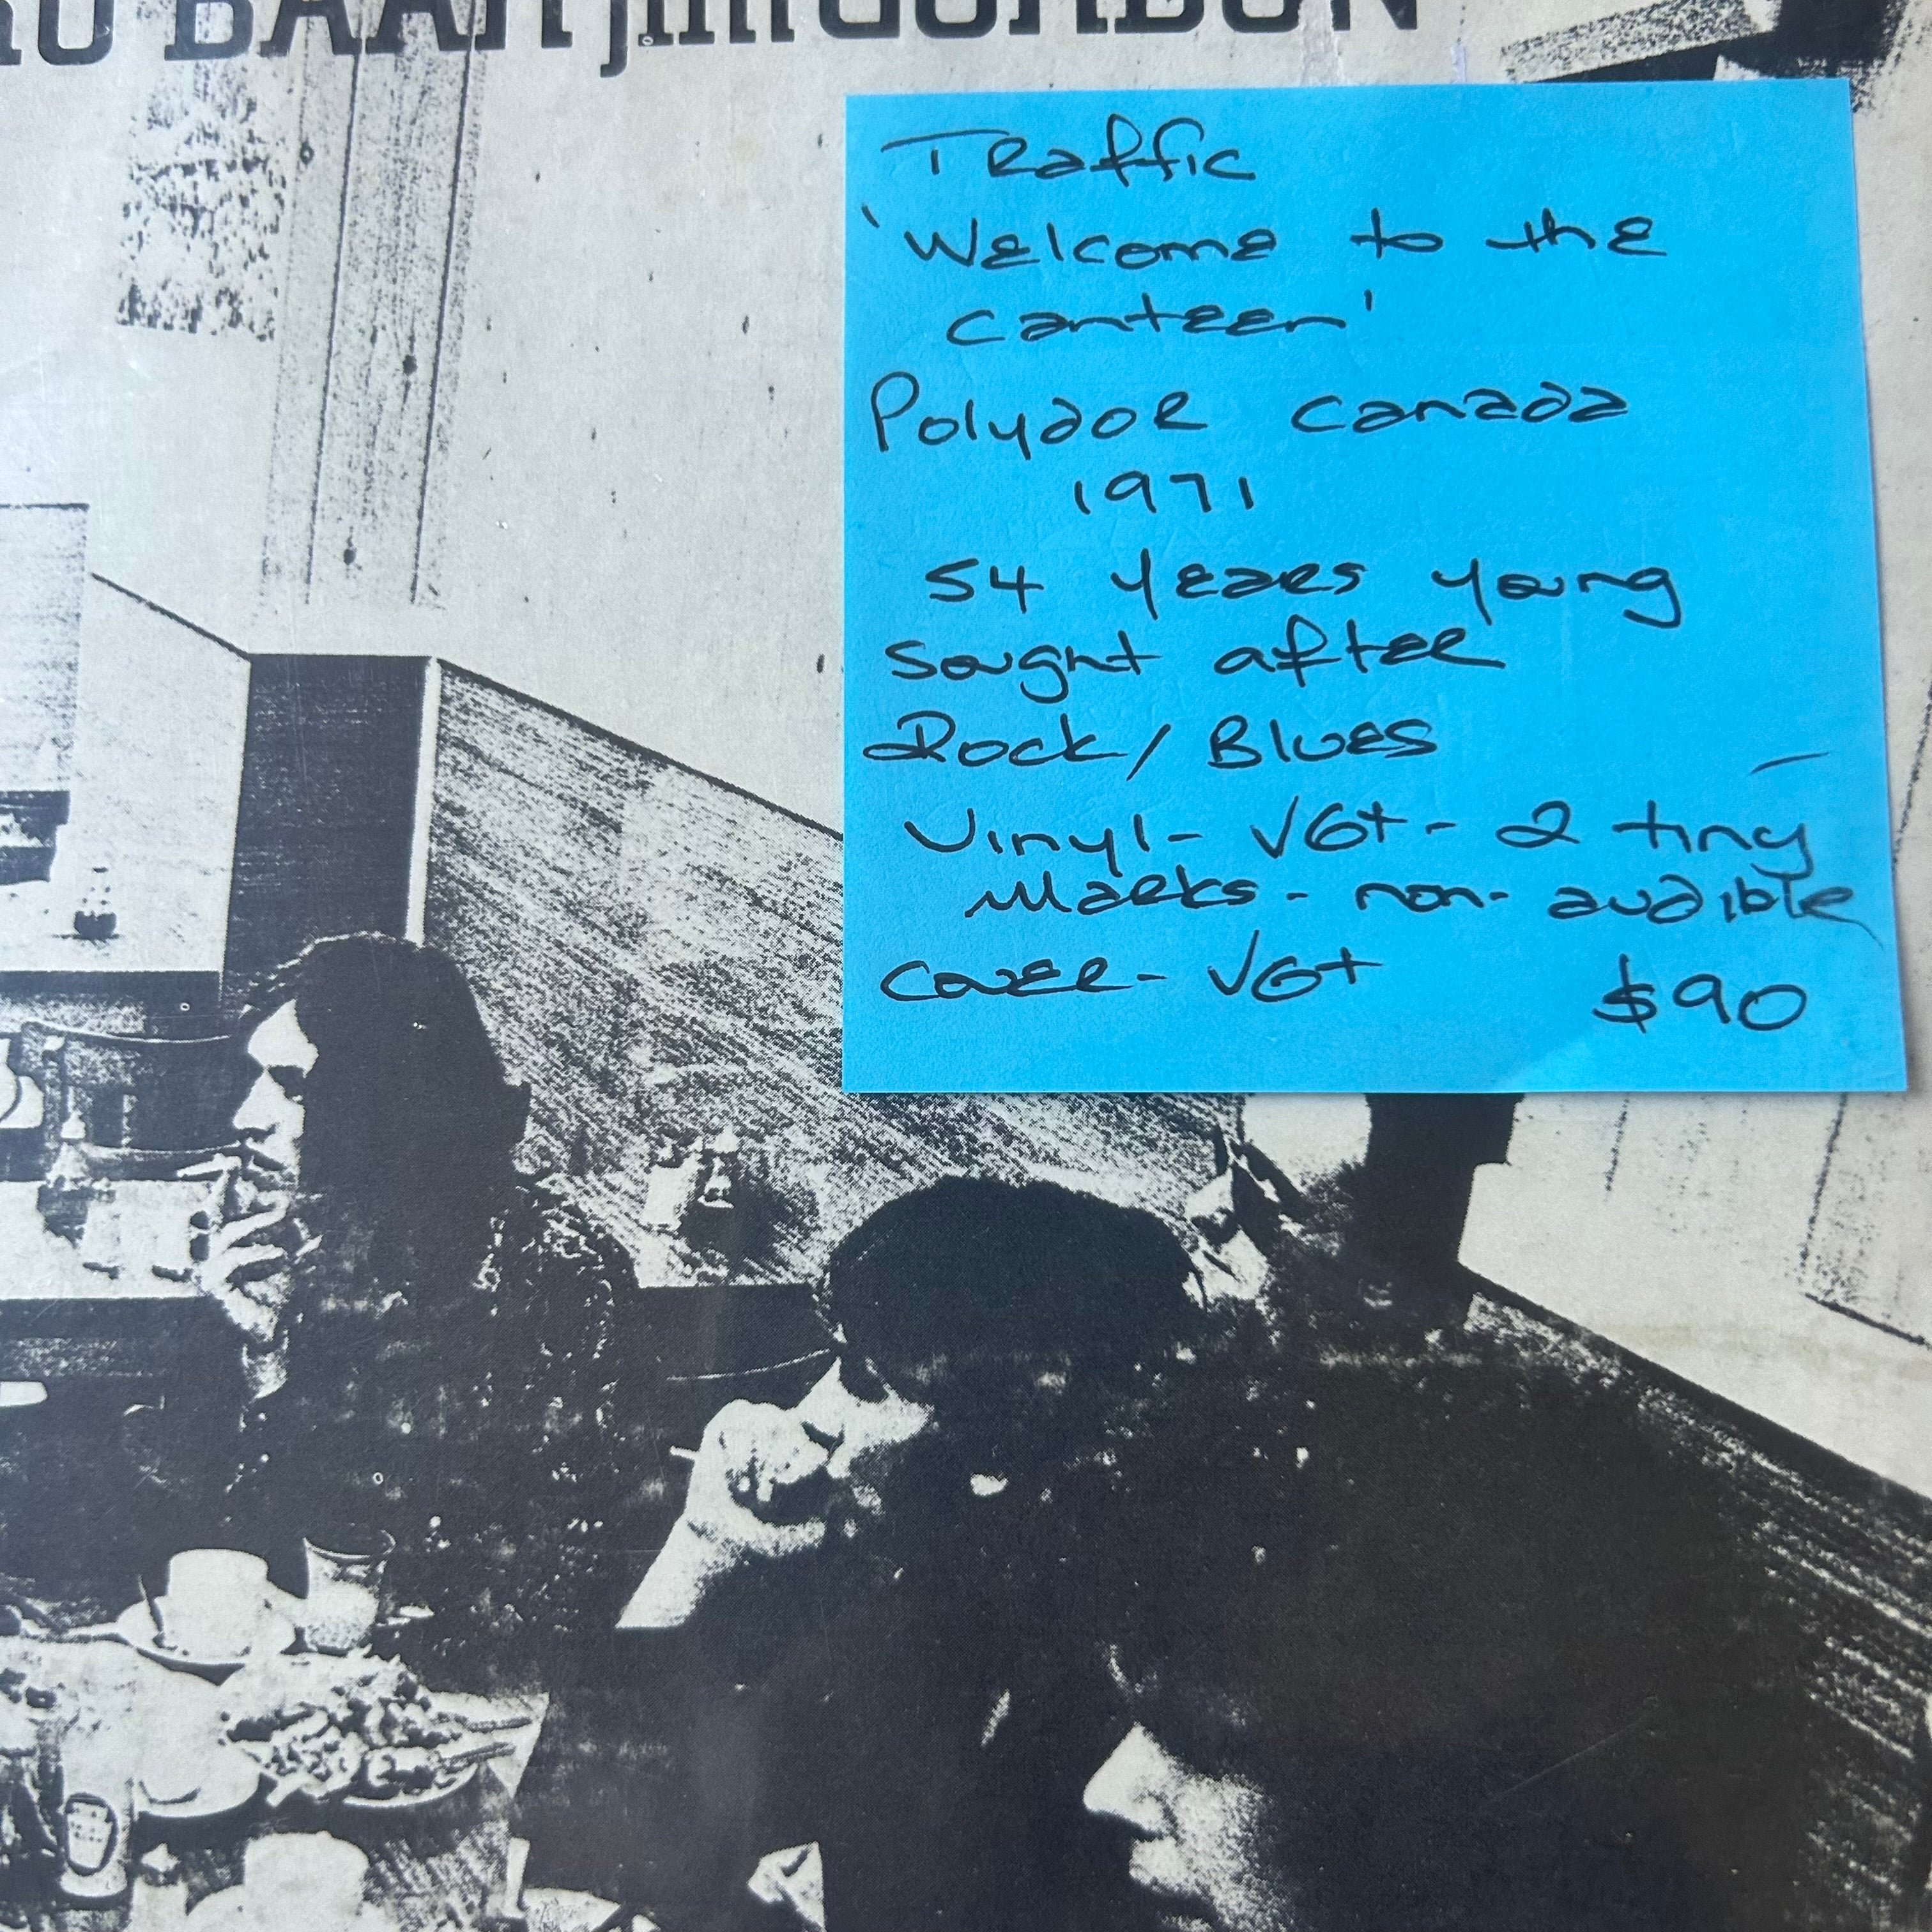 BAAH jim GORDON
Traffic
'Welcome to the
canteen'
Polydor Canada
1971
54 years young
sought after
Rock/Blues
Vinyl- VG+- 2 tiny
marks - non- audible
cover- VG+ $90